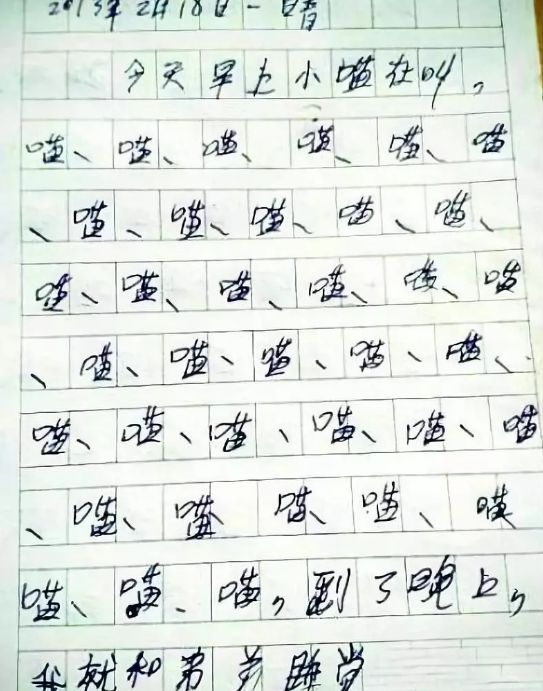 2013年2月18日 一 晴
今天早上小喵在叫，
喵、喵、喵、喵、喵、喵
、喵、喵、喵、喵、喵、
喵、喵、喵、喵、喵、喵
、喵、喵、喵、喵、喵、
喵、喵、喵、喵、喵、喵
、喵、喵 喵、喵、喵
喵、喵、喵，到了晚上，
我就和弟弟睡觉